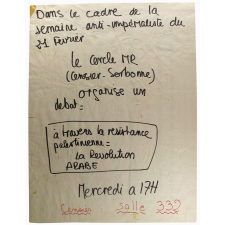 Dans le cadre de la
semaine anti-impérialiste du
21 Fevrier
le Cercle MR
(Censier-Sorbonne)
organise un
debat :
à travers la resistance
palestinienne :
la Revolution
ARABE
Mercredi a 17H
Censier Salle 332